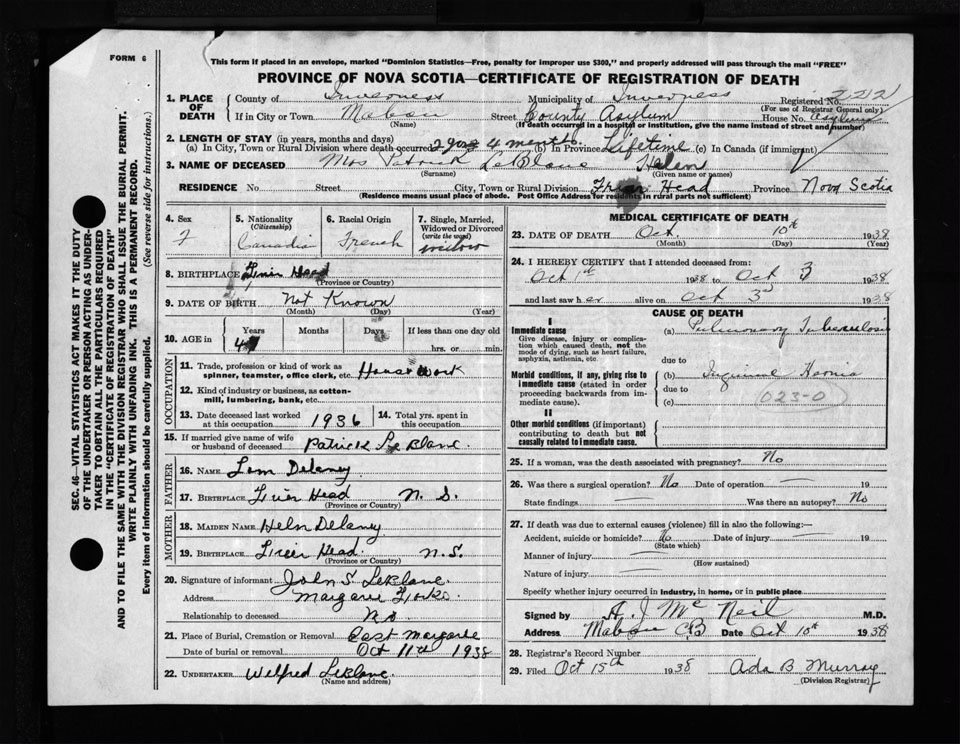 FORM 6
This form if placed in an envelope, marked "Dominion Statistics—Free, penalty for improper use $300," and properly addressed will pass through the mail "FREE"
PROVINCE OF NOVA SCOTIA—CERTIFICATE OF REGISTRATION OF DEATH
1. PLACE OF DEATH
County of Inverness Municipality of Inverness Registered No. 222
(For use of Registrar General only)
If in City or Town Mabou Street County Asylum House No. Asylum
(Name) (If death occurred in a hospital or institution, give the name instead of street and number)
2. LENGTH OF STAY (in years, months and days)
(a) In City, Town or Rural Division where death occurred 2 yrs 4 months (b) In Province Lifetime (c) In Canada (if immigrant)
3. NAME OF DECEASED Mrs Patrick LeBlanc Helen
(Surname) (Given name or names)
RESIDENCE No. Street City, Town or Rural Division Friar Head Province Nova Scotia
(Residence means usual place of abode. Post Office Address for residents in rural parts not sufficient)
4. Sex F
5. Nationality (Citizenship) Canadian
6. Racial Origin French
7. Single, Married, Widowed or Divorced (write the word) widow
8. BIRTHPLACE Frier Head
(Province or Country)
9. DATE OF BIRTH Not Known
(Month) (Day) (Year)
10. AGE in Years Months Days If less than one day old
hrs. or min.
OCCUPATION
11. Trade, profession or kind of work as spinner, teamster, office clerk, etc. House Work
12. Kind of industry or business, as cotton-mill, lumbering, bank, etc.
13. Date deceased last worked at this occupation 1936
14. Total yrs. spent in this occupation
15. If married give name of wife or husband of deceased Patrick LeBlanc
FATHER
16. NAME Lem Delaney
17. BIRTHPLACE Frier Head N. S.
(Province or Country)
MOTHER
18. MAIDEN NAME Heln Delaney
19. BIRTHPLACE Frier Head N.S.
(Province or Country)
20. Signature of informant John S. LeBlanc
Address Margaree Forks
Relationship to deceased
21. Place of Burial, Cremation or Removal East Margaree
Date of burial or removal Oct 11th 1938
22. UNDERTAKER Wilfred LeBlanc
(Name and address)
MEDICAL CERTIFICATE OF DEATH
23. DATE OF DEATH Oct. 10th 1938
(Month) (Day) (Year)
24. I HEREBY CERTIFY that I attended deceased from:
Oct 1st 1938 to Oct 3 1938
and last saw her alive on Oct 3rd 1938
CAUSE OF DEATH
I
Immediate cause
Give disease, injury or complication which caused death, not the mode of dying, such as heart failure, asphyxia, asthenia, etc.
(a) Pulmonary Tuberculosis
due to
Morbid conditions, if any, giving rise to immediate cause (stated in order proceeding backwards from immediate cause).
(b) Hernia
due to
(c) 023-0
II
Other morbid conditions (if important) contributing to death but not causally related to immediate cause.
25. If a woman, was the death associated with pregnancy? No
26. Was there a surgical operation? No Date of operation — 19
State findings — Was there an autopsy? No
27. If death was due to external causes (violence) fill in also the following:—
Accident, suicide or homicide? No Date of injury — 19
(State which)
Manner of injury —
(How sustained)
Nature of injury —
Specify whether injury occurred in industry, in home, or in public place
Signed by A. J. McNeil M.D.
Address Mabou CB Date Oct 10th 1938
28. Registrar's Record Number
29. Filed Oct 15th 1938 Ada B Murray
(Division Registrar)
SEC. 46—VITAL STATISTICS ACT MAKES IT THE DUTY
OF THE UNDERTAKER OR PERSON ACTING AS UNDER-
TAKER TO OBTAIN ALL THE PARTICULARS REQUIRED
IN THE "CERTIFICATE OF REGISTRATION OF DEATH"
AND TO FILE THE SAME WITH THE DIVISION REGISTRAR WHO SHALL ISSUE THE BURIAL PERMIT.
WRITE PLAINLY WITH UNFADING INK. THIS IS A PERMANENT RECORD.
Every item of information should be carefully supplied. (See reverse side for instructions.)